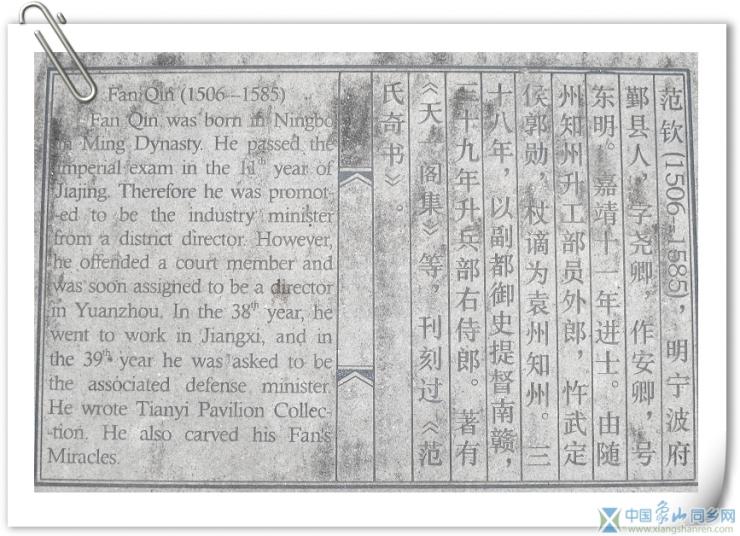 Fan Qin (1506—1585)
Fan Qin was born in Ningbo
in Ming Dynasty. He passed the
imperial exam in the 11th year of
Jiajing. Therefore he was promot-
-ed to be the industry minister
from a district director. However,
he offended a court member and
was soon assigned to be a director
in Yuanzhou. In the 38th year, he
went to work in Jiangxi, and in
the 39th year he was asked to be
the associated defense minister.
He wrote Tianyi Pavilion Collec-
-tion. He also carved his Fan's
Miracles.
范钦(1506—1585)，明宁波府
鄞县人，字尧卿，作安卿，号
东明。嘉靖十一年进士。由随
州知州升工部员外郎，忤武定
侯郭勋，杖谪为袁州知州。三
十八年，以副都御史提督南赣，
三十九年升兵部右侍郎。著有
《天一阁集》等，刊刻过《范
氏奇书》。
中国象山同乡网
www.xiangshanren.com